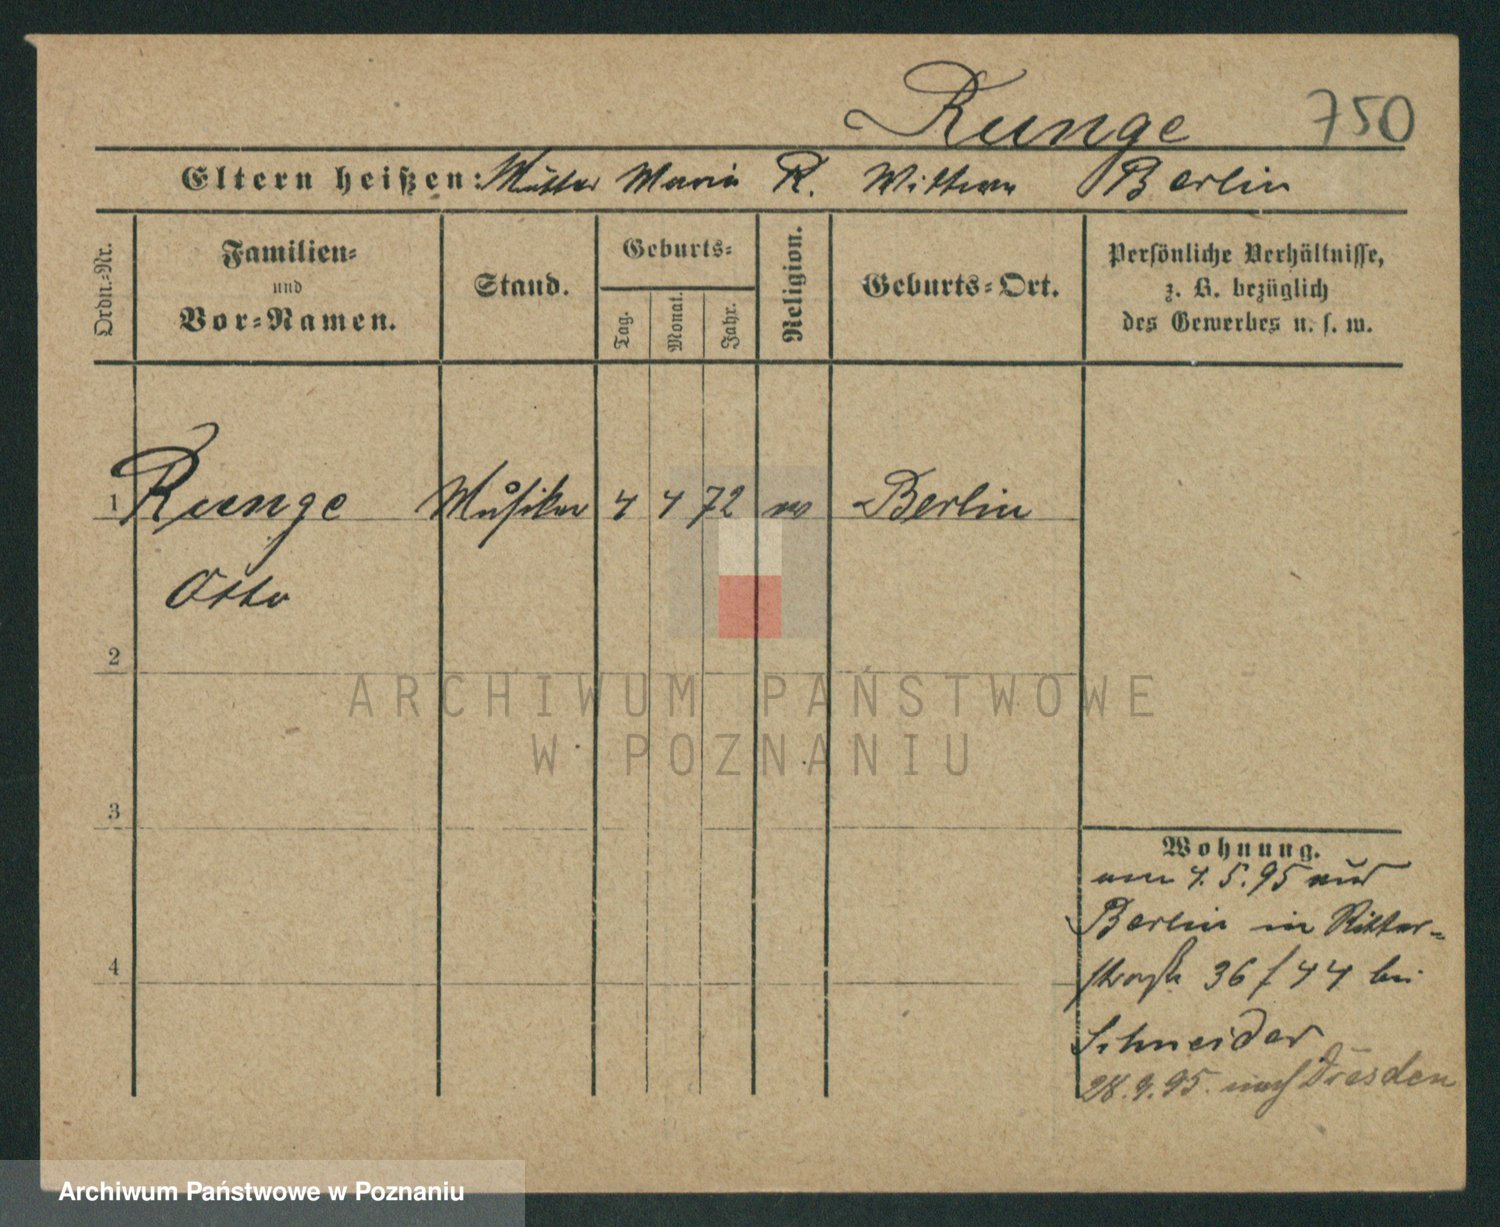 Runge 750
Eltern heißen: Mutter Maria R. Wittwe Berlin
Ordn.-Nr.
Familien-
und
Vor-Namen.
Stand.
Geburts-
Tag.
Monat.
Jahr.
Religion.
Geburts-Ort.
Persönliche Verhältnisse,
z. B. bezüglich
des Gewerbes u. s. w.
1 Runge Musiker 4 4 72 Berlin
Otto
2
3
4
Wohnung.
4. 5. 95 aus
Berlin in Ritter-
straße 36/44 bei
Schneider
28.9.95. nach Dresden
ARCHIWUM PAŃSTWOWE
W POZNANIU
Archiwum Państwowe w Poznaniu